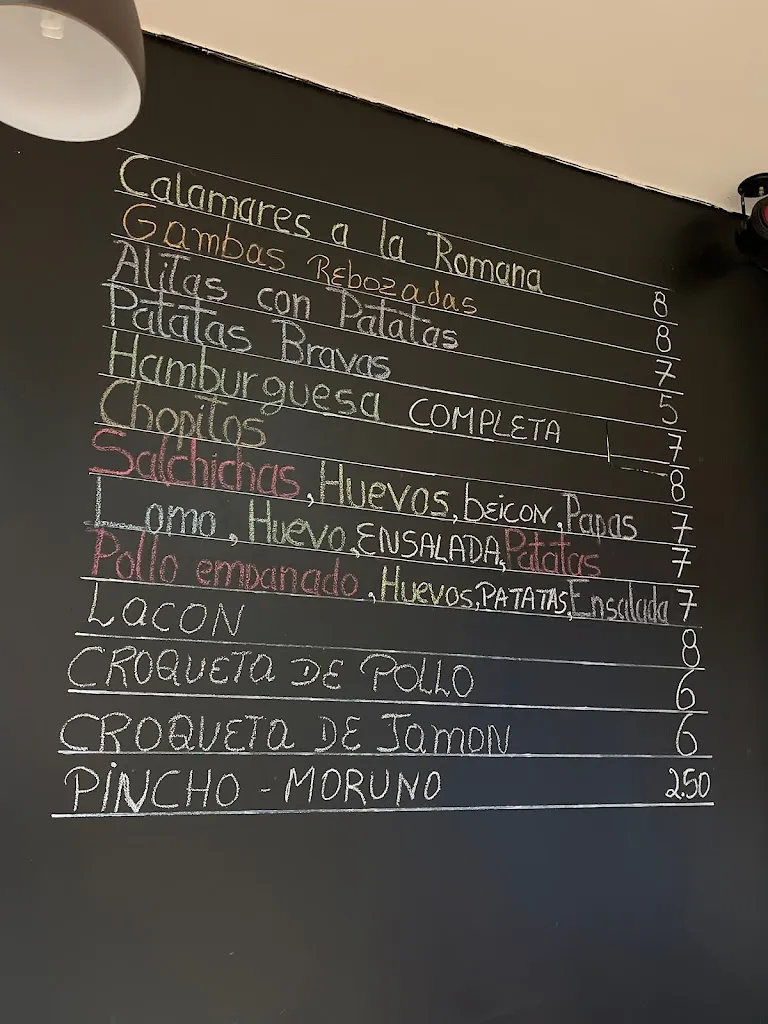 Calamares a la Romana 8
Gambas Rebozadas 8
Alitas con Patatas 7
Patatas Bravas 5
Hamburguesa COMPLETA 7
Chopitos 8
Salchichas, Huevos, beicon, Papas 7
Lomo, Huevo, ENSALADA, Patatas 7
Pollo empanado, Huevos, PATATAS, Ensalada 7
LACON 8
CROQUETA DE POLLO 6
CROQUETA DE JAMON 6
PINCHO - MORUNO 2.50